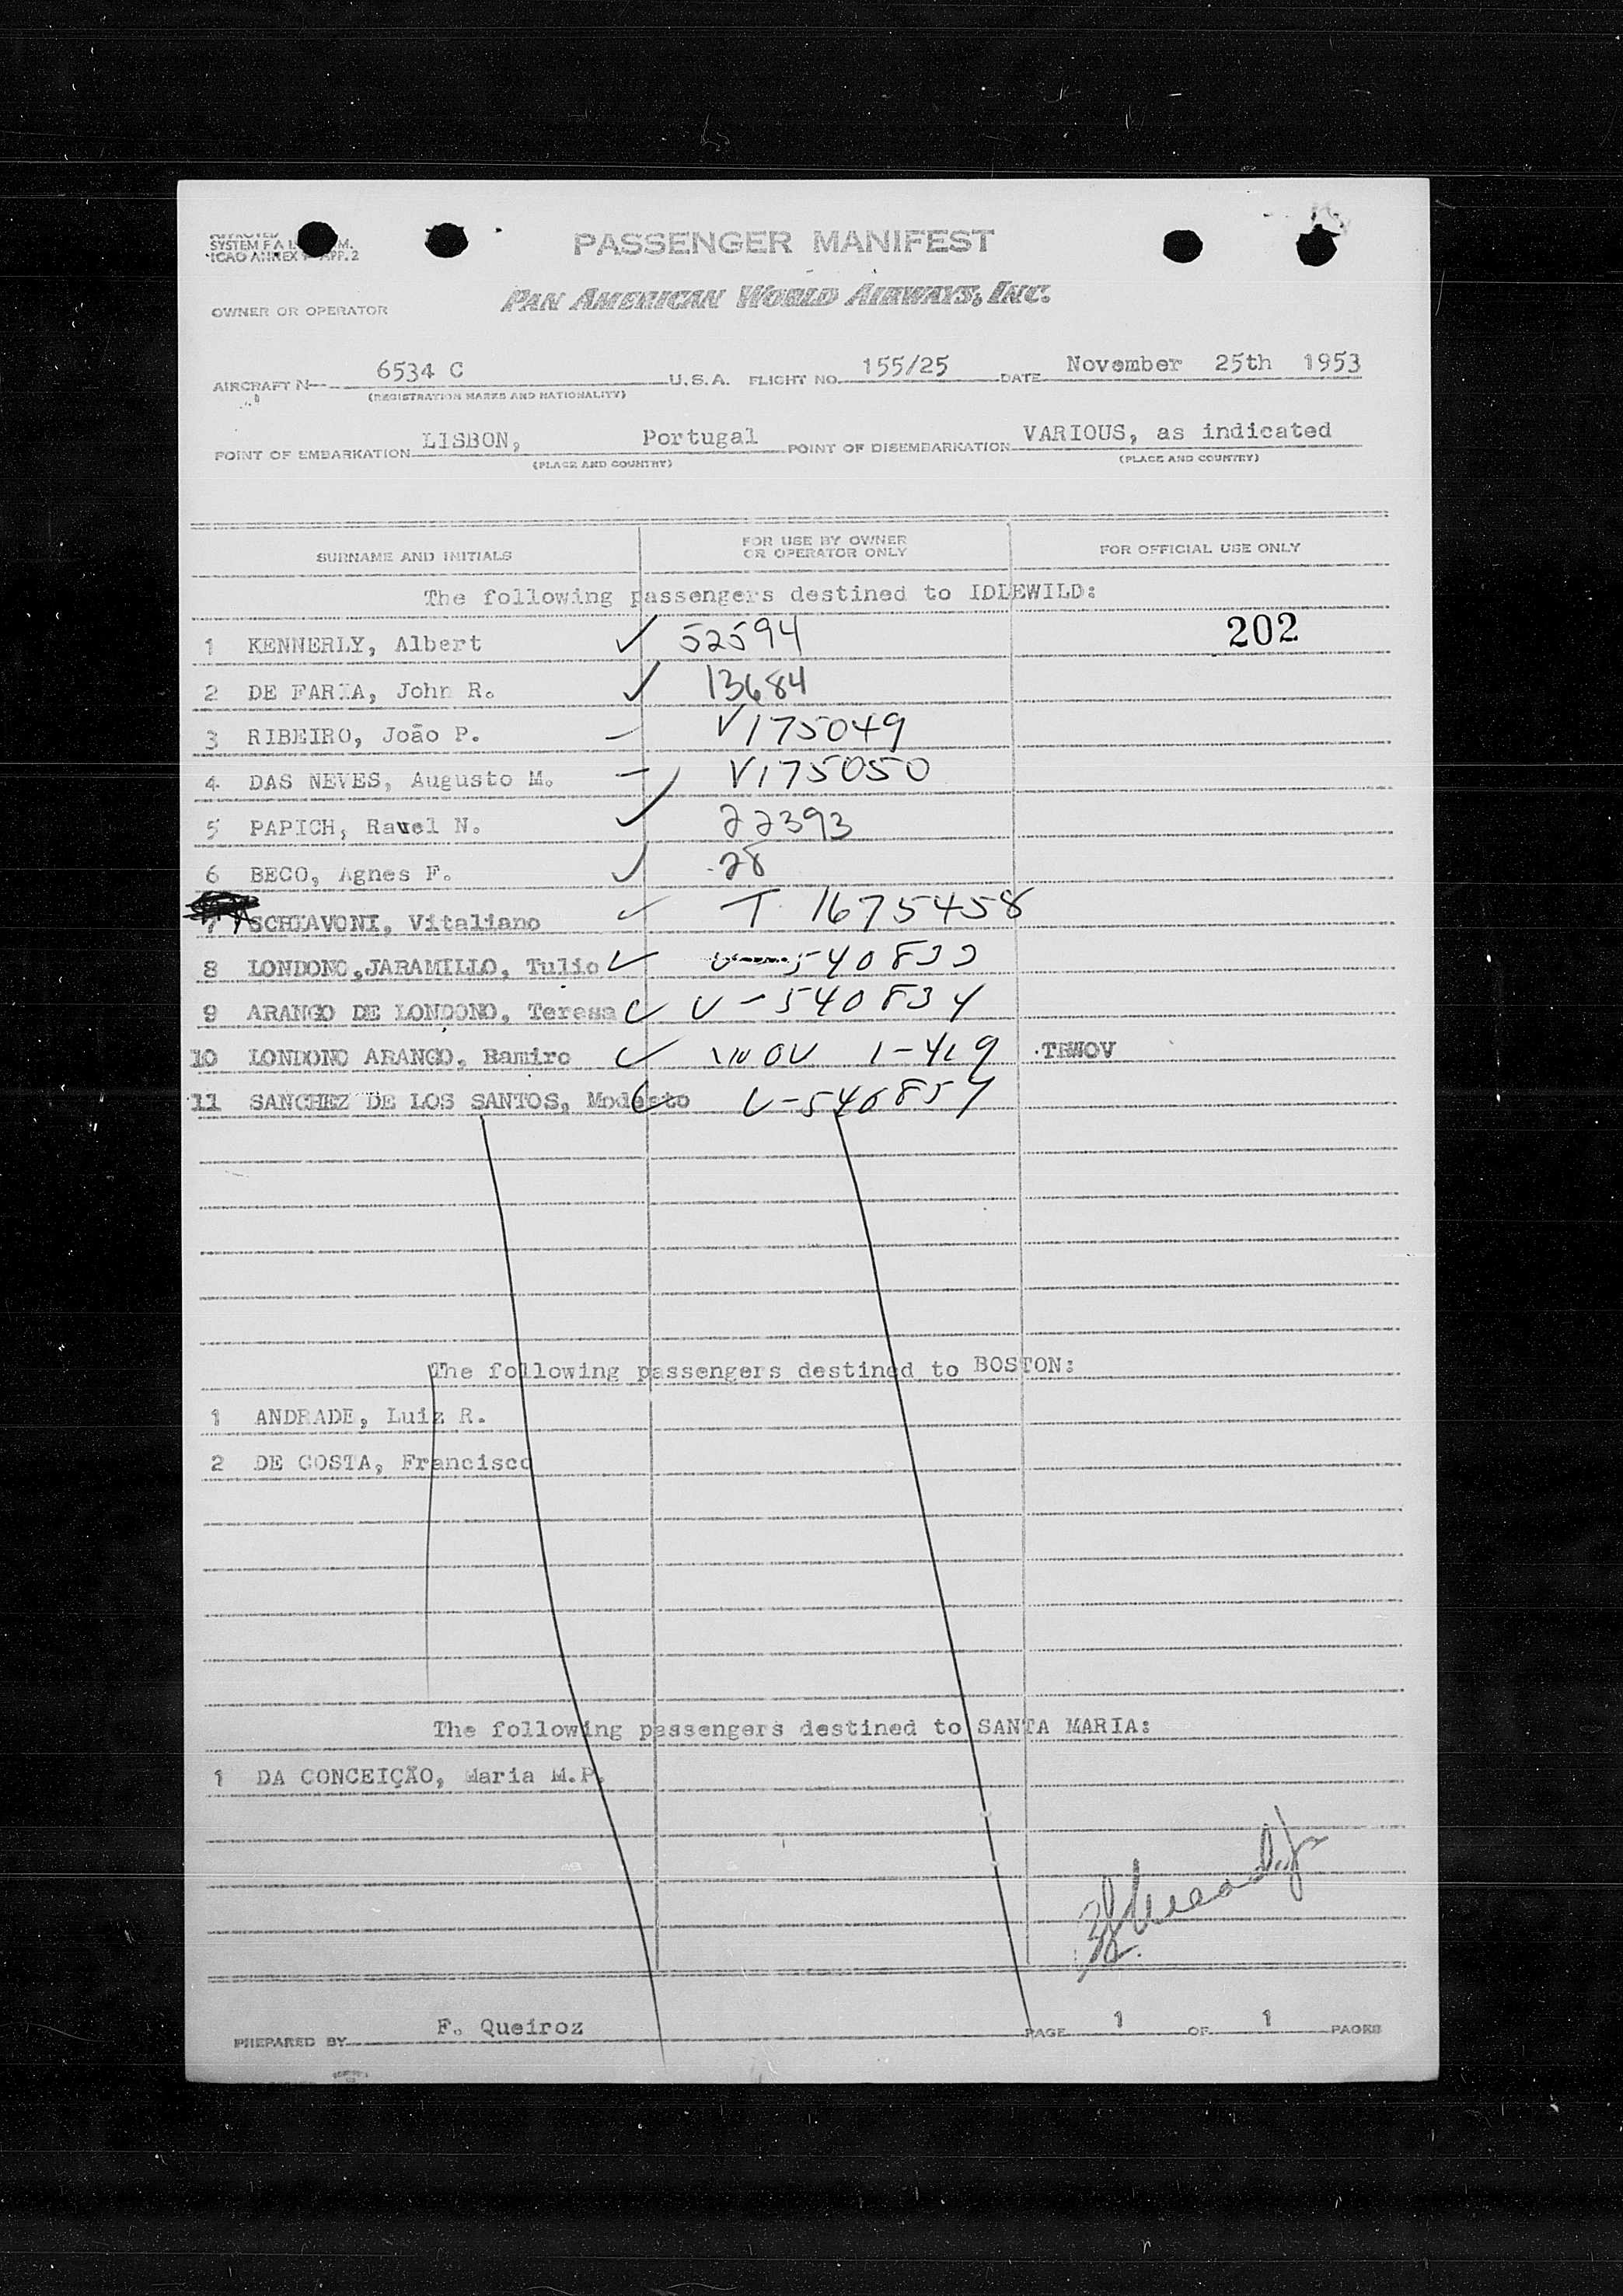 APPROVED
SYSTEM F A L
ICAO ANNEX APP. 2
PASSENGER MANIFEST
OWNER OR OPERATOR PAN AMERICAN WORLD AIRWAYS, INC.
AIRCRAFT N 6534 C U.S.A. FLIGHT NO. 155/25 DATE November 25th 1953
(REGISTRATION MARKS AND NATIONALITY)
POINT OF EMBARKATION LISBON, Portugal POINT OF DISEMBARKATION VARIOUS, as indicated
(PLACE AND COUNTRY) (PLACE AND COUNTRY)
SURNAME AND INITIALS FOR USE BY OWNER OR OPERATOR ONLY FOR OFFICIAL USE ONLY
The following passengers destined to IDLEWILD:
1 KENNERLY, Albert ✓ 52594 202
2 DE FARIA, John R. ✓ 13684
3 RIBEIRO, João P. – V175049
4 DAS NEVES, Augusto M. – V175050
5 PAPICH, Ravel N. ✓ 22393
6 BECO, Agnes F. ✓ 28
7 SCHIAVONI, Vitaliano ✓ T 1675458
8 LONDONO,JARAMILLO, Tulio ✓ 540833
9 ARANGO DE LONDONO, Teresa ✓ V-540834
10 LONDONO ARANGO, Ramiro ✓ 1-419 TRWOV
11 SANCHEZ DE LOS SANTOS, Modesto ✓ V-546857
The following passengers destined to BOSTON:
1 ANDRADE, Luiz R.
2 DE COSTA, Francisco
The following passengers destined to SANTA MARIA:
1 DA CONCEIÇÃO, Maria M.P.
PREPARED BY F. Queiroz PAGE 1 OF 1 PAGES